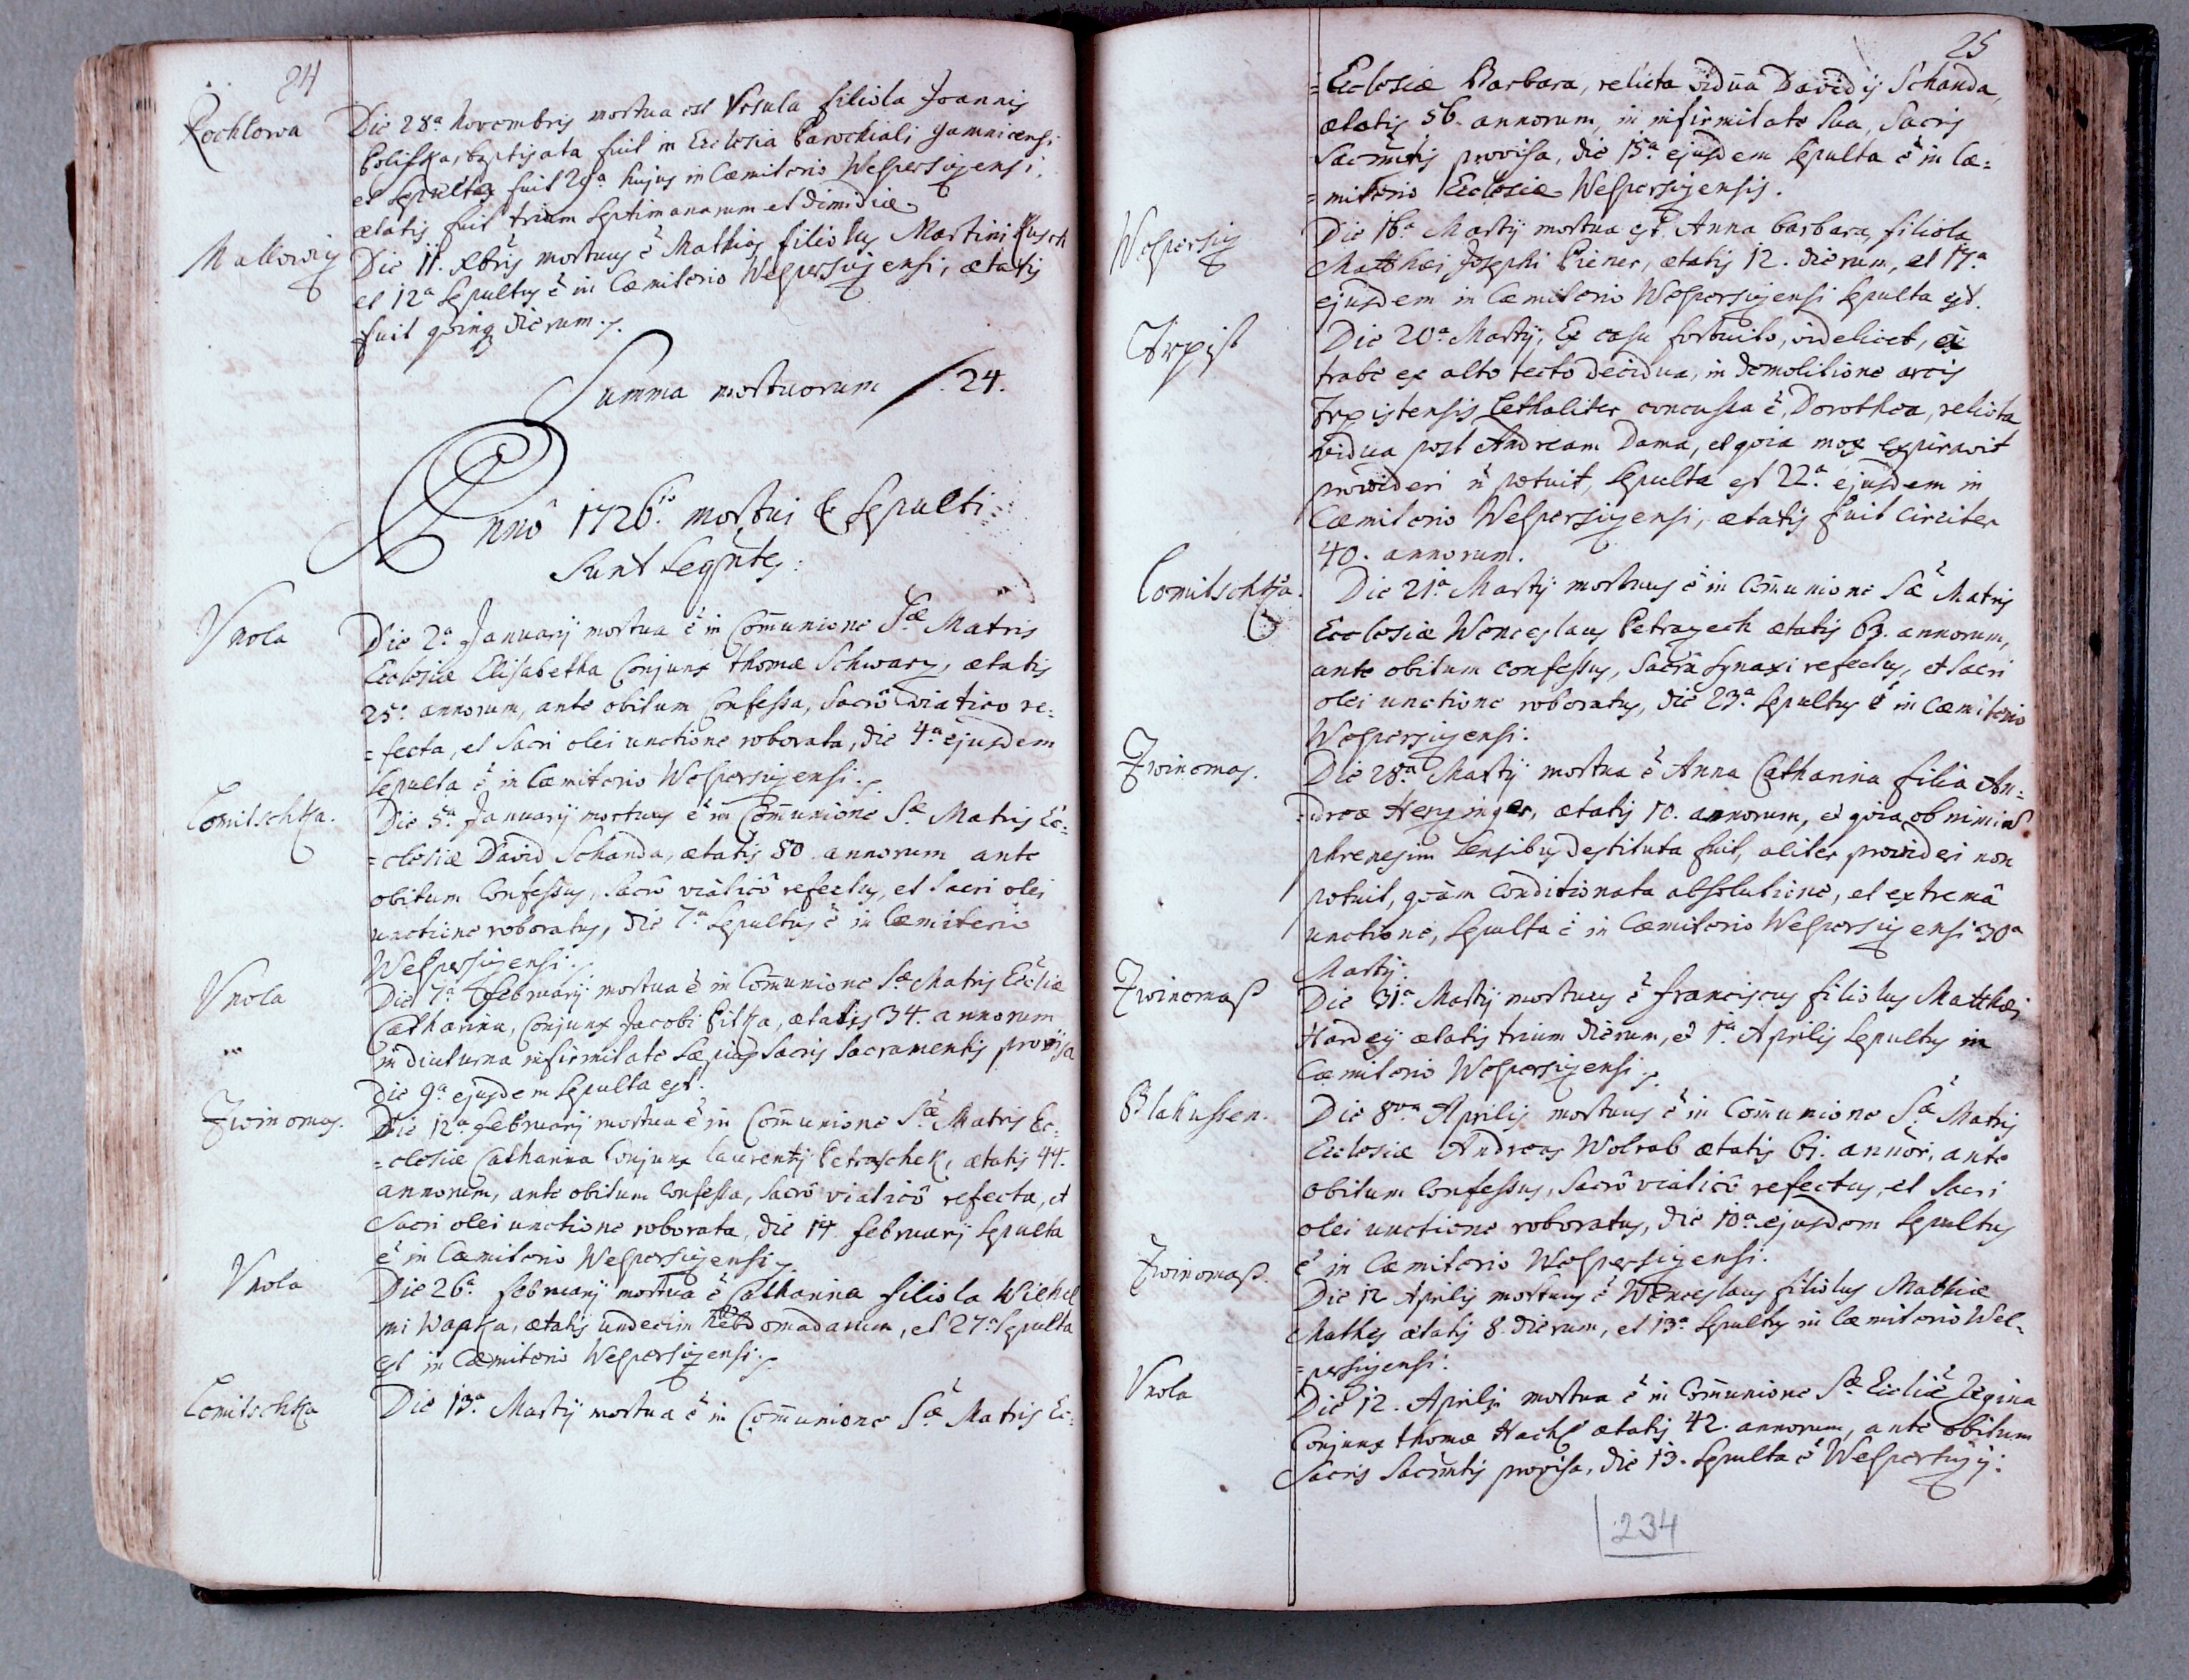 24
Kochlowa
Die 28ª Novembris mortua est Ursula filiola Joannis
Polifka, baptizata fuit in Ecclesia Parochiali
et sepulta fuit 29ª hujus in Cæmiterio Wesperzizensi,
ætatis fuit trium septimanarum et dimidiæ
Mallowiz
Die 11. Xbris mortuus ẽ Mathias filiolus Martini Kusch
et 12ª sepultus ẽ in Cæmiterio Wesperzizensi, ætatis
fuit quinq dierum.
Summa mortuorum /. 24.
Annô 1726.tô mortui & sepulti
sunt seqntes:
Vnola
Die 2ª January mortua ẽ in Com̄unione Sæ Matris
Ecclesiæ Elisabetha Conjunx Thomæ Schwarz, ætatis
25. annorum, ante obitum Confessa, Sacrô viatico re:
=fecta, et Sacri olei unctione roborata, die 4ª ejusdem
sepulta ẽ in Cæmiterio Wesperzizensi.
Lomitschka.
Die 5ª January mortuus ẽ in Com̄unione Sæ Matris Ec:
=clesiæ David Schanda, ætatis 80 annorum ante
obitum Confessus, Sacrô viaticô refectus, et Sacri olei
unctione roboratus, die 7ª sepultus ẽ in Cæmiterio
Wesperzizensi.
Vnola
Die 7ª February mortua ẽ in Com̄unione Sæ Matris Eccliæ
Catharina, Conjunx Jacobi Pitka, ætatis 34. annorum
in diuturna infirmitate sæpius Sacris Sacramentis provisa
die 9ª ejusdem sepulta est.
Zwinomas.
Die 12ª February mortua ẽ in Com̄unione Sæ Matris Ec:
=clesiæ Catharina Conjunx Laurentij Petraschek, ætatis 44.
annorum, ante obitum Confessa, Sacrô viaticô refecta, et
Sacri olei unctione roborata, die 14 February sepulta
ẽ in Cæmiterio Wesperzizensi.
Vnola
Die 26ª February mortua ẽ Catharina filiola Wilhel
mi Wapka, ætatis undecim hebdomadarum, et 27ª sepulta
est in Cæmiterio Wesperzizensi.
Lomitschka
Die 13ª Martij mortua ẽ in Com̄unione Sæ Matris Ec:
25
=Ecclesiæ Barbara, relicta vidua Davidis Schanda,
ætatis 56. annorum, in infirmitate sua, Sacris
Sacrm̄tis provisa, die 15ª ejusdem sepulta ẽ in Cæ:
=miterio Ecclesiæ Wesperzizensis.
Wesperziz
Die 16ª Martij mortua est Anna Barbara, filiola
Matthæi Josephi Piener, ætatis 12. dierum, et 17ª
ejusdem in Cæmiterio Wesperzizensi sepulta est.
Trpist
Die 20ª Martij, Ex casu fortuito, videlicet, ex
trabe ex alto tecto decidua, in demolitione arcis
Trpistensis Lethaliter concussa ẽ Dorothea, relicta
vidua post Andream Dama, et quia mox expiravit
provideri ñ potuit, sepulta est 22ª ejusdem in
Cæmiterio Wesperzizensi, ætatis fuit circiter
40. annorum.
Lomitschka.
Die 21ª Martij mortuus ẽ in Com̄unione Sæ Matris
Ecclesiæ Wenceslaus Petrazech ætatis 63. annorum,
ante obitum confessus, Sacrâ Synaxi refectus, et Sacri
olei unctione roboratus, die 23ª sepultus ẽ in Cæmiterio
Wesperzizensi.
Zwinomas.
Die 28ª Martij mortua ẽ Anna Catharina filia An:
=dreæ Herzinger, ætatis 10. annorum, et quia ob nimiâ
phrenesim sensibus destituta fuit, aliter provideri non
potuit, quàm conditionata absolutione, et extremâ
unctione, sepulta ẽ in Cæmiterio Wesperzizensi 30ª
Martij.
Zwinomaß
Die 31ª Martij mortuus ẽ Franciscus filiolus Matthæi
Hardey ætatis trium dierum, et 1ª Aprilis sepultus in
Cæmiterio Wesperzizensi.
Blahussen.
Die 8va Aprilis mortuus ẽ in Com̄unione Sæ Matris
Ecclesiæ Andreas Wolrab ætatis 61. annor, ante
obitum Confessus, Sacrô viaticô refectus, et Sacri
olei unctione roboratus, die 10ª ejusdem sepultus
ẽ in Cæmiterio Wesperzizensi.
Zwinomaß.
Die 12 Aprilis mortuus ẽ Wenceslaus filiolus Mathiæ
Mathes ætatis 8. dierum, et 13ª sepultus in Cæmiterio Wes=
=perzizensi.
Vnola
Die 12. Aprilis mortua ẽ in Com̄unione Sæ Eccliæ Regina
Conjunx Thomæ Hachl ætatis 42. annorum, ante obitum
Sacris Sacrm̄tis provisa, die 13. sepulta ẽ Wesperzizij.
234